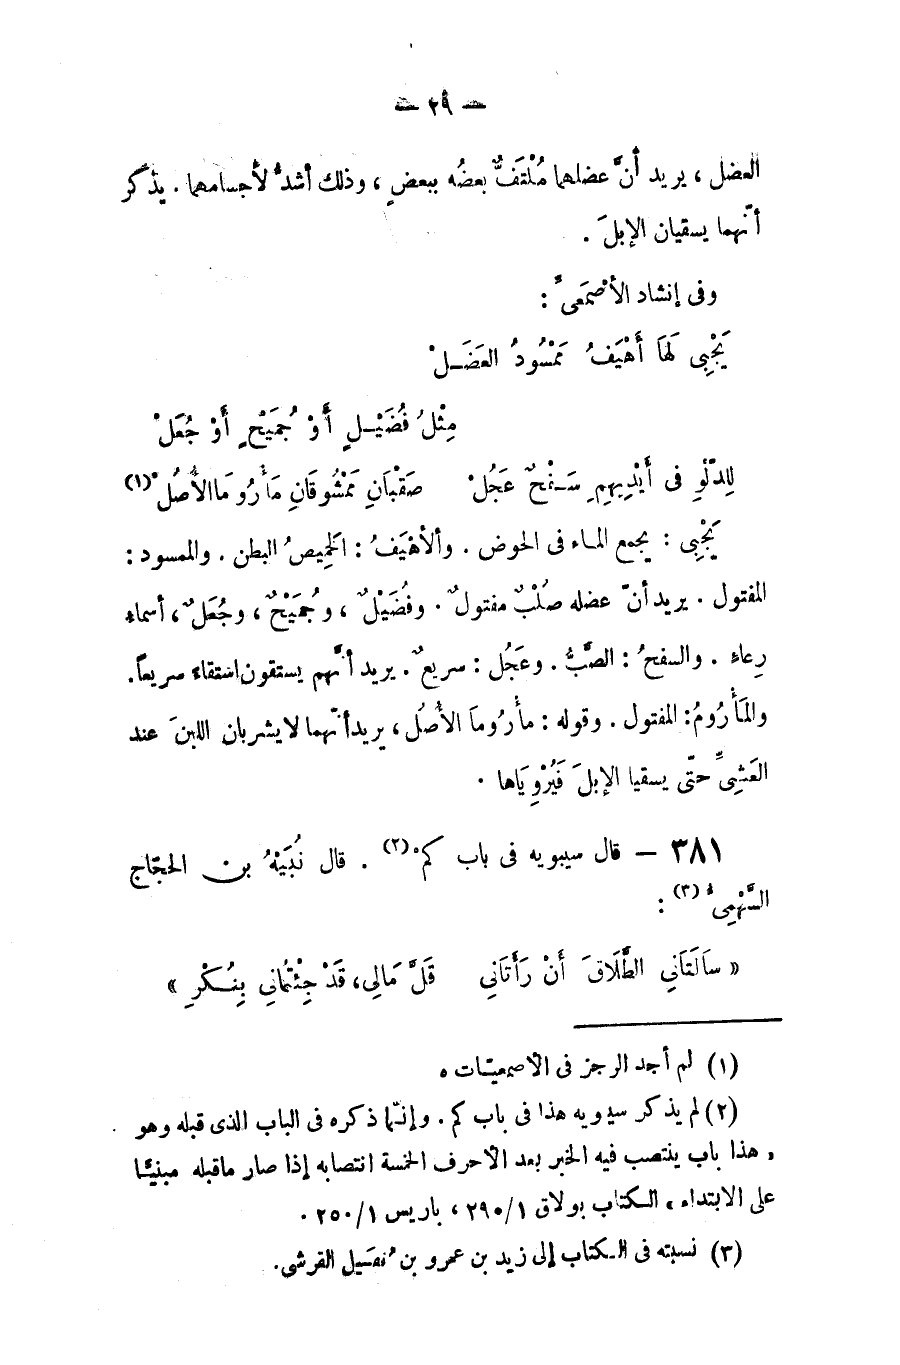 — ٢٩ —
العضل ، يريد أنَّ عضلهما مُلْتَفٌّ بعضُه ببعضٍ ، وذلك أشدُّ لأجسامهما . يذكر
أنّهما يسقيان الإبلَ .
وفى إنشاد الأصْمَعىِّ :
يَجْبِى لَهَا أَهْيَفُ مَمْسُودُ العَضَـلْ
مِثْلُ فُضَيْـلٍ أَوْ جُمَيْحٍ أَوْ جُعَلْ
لِلدّلْوِ فى أَيْدِيهِمِ سَـفْحٌ عَجُلْ صَقْبَانِ مَمْشُوقَانِ مَأْرُومَا الأُصُلْ (١)
يَجْبِى : يجمع المـاء فى الحوض . والأهْيَفُ : الخَمِيصُ البطن . والممسود :
المفتول . يريد أنّ عضله صُلْبٌ مفتولٌ . وفُضَيْلٌ ، وجُمَيْحٌ ، وجُعَلٌ ، أسماء
رِعاء . والسفحُ : الصَّبُّ . وعَجُل : سريعٌ . يريد أنَّهم يستقون استقاء سريعاً .
والمَأْرُومُ : المفتول . وقوله : مأرُومَا الأُصُل ، يريد أنّهما لا يشربان اللبنَ عند
العَشِىِّ حتّى يسقيا الإبلَ فَيُرْوِيَاها .
٣٨١ — قال سيبويه فى باب كم (٢) . قال نُبَيْهُ بن الحجّاج
السَّهْمِىُّ (٣) :
« سَالَتَانِي الطَّلَاقَ أَنْ رَأَتَانِي قَلَّ مَالِي، قَدْ جِئْتُمَانِي بِنُـكْرِ »
(١) لم أجد الرجز فى الأصمعيّـات .
(٢) لم يذكر سيبويه هذا فى باب كم . وإنّما ذكره فى الباب الذى قبله وهو
« هذا باب ينتصب فيه الخبر بعد الأحرف الخمسة انتصابه إذا صار ماقبله مبنيًّـا
على الابتداء » الـكتاب بولاق ٢٩٠/١ ، باريس ٢٥٠/١ .
(٣) نسبته فى الـكتاب إلى زيد بن عمرو بن نُفَيل القرشى .